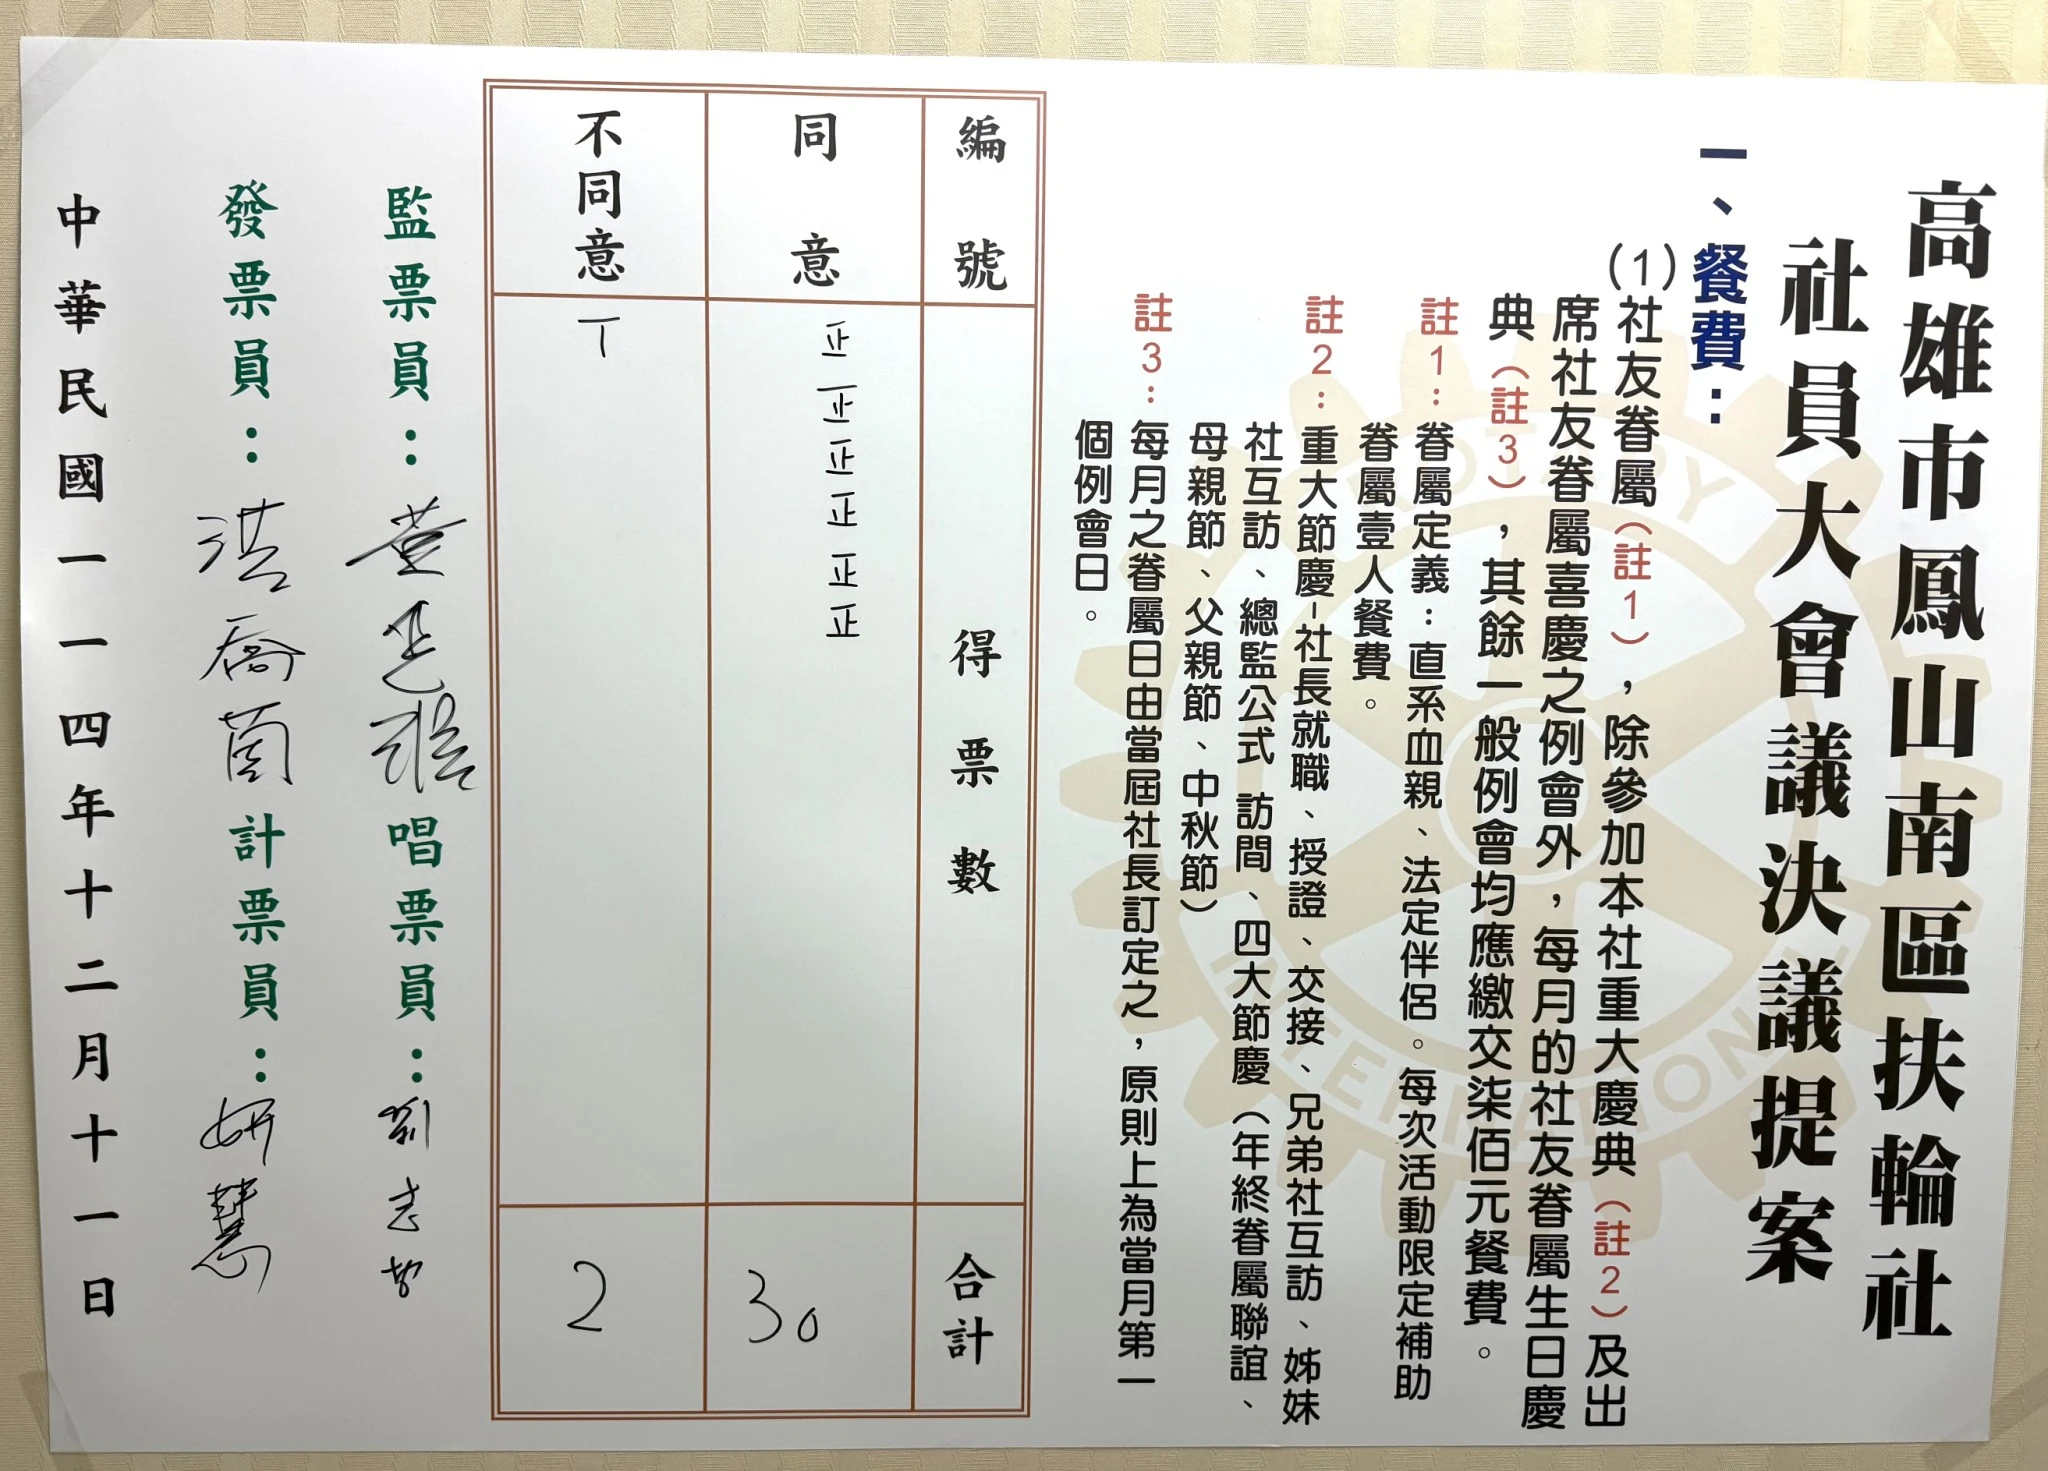 高雄市鳳山南區扶輪社
社員大會議決議提案
一、餐費：
(1)社友眷屬（註1），除參加本社重大慶典（註2）及出
席社友眷屬喜慶之例會外，每月的社友眷屬生日慶
典（註3），其餘一般例會均應繳交柒佰元餐費。
註1：眷屬定義：直系血親、法定伴侶。每次活動限定補助
眷屬壹人餐費。
註2：重大節慶-社長就職、授證、交接、兄弟社互訪、姊妹
社互訪、總監公式 訪問、四大節慶（年終眷屬聯誼、
母親節、父親節、中秋節）
註3：每月之眷屬日由當屆社長訂定之，原則上為當月第一
個例會日。
編號 得票數 合計
同意 正正正正正正 30
不同意 丅 2
監票員： 唱票員：劉志
發票員：洪喬茵 計票員：妍慧
中華民國一一四年十二月十一日
ROTARY
INTERNATIONAL